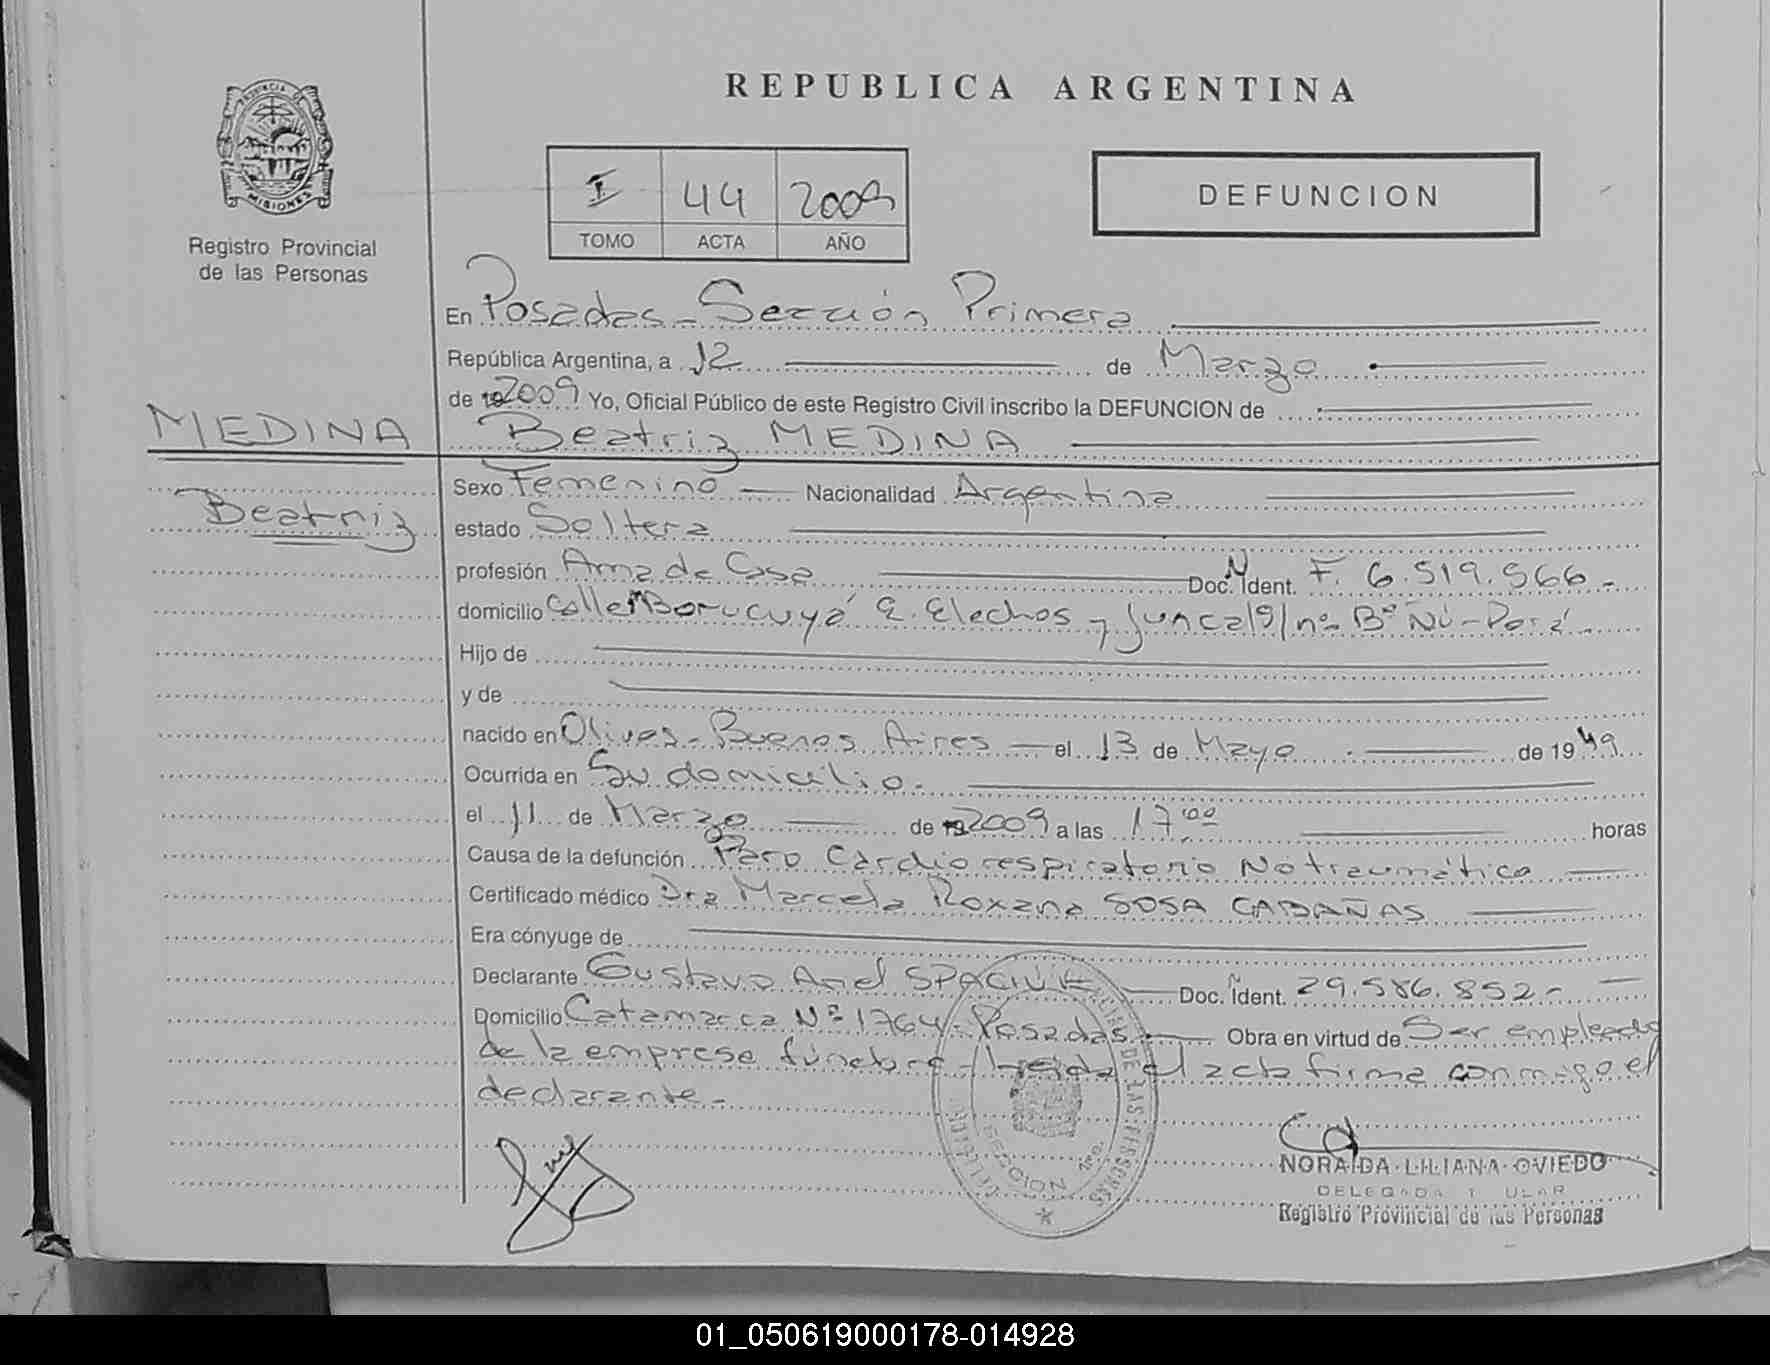 REPUBLICA ARGENTINA
PROVINCIA DE
MISIONES
Registro Provincial
de las Personas
I 44 2009
TOMO ACTA AÑO
DEFUNCION
En Posadas - Sección Primera
República Argentina, a 12 de Marzo
de 2009 Yo, Oficial Público de este Registro Civil inscribo la DEFUNCION de
MEDINA
Beatriz MEDINA
Beatriz
Sexo Femenino Nacionalidad Argentina
estado Soltera
profesión Ama de Casa Doc. N Ident. F. 6.519.566.-
domicilio Calle Borucuyá E. Elechos y Juncal s/nº Bº Ñú-Porá
Hijo de
y de
nacido en Olivos - Buenos Aires el 13 de Mayo de 1949
Ocurrida en Su domicilio.
el 11 de Marzo de 2009 a las 17 00 horas
Causa de la defunción Paro Cardiorespiratorio No traumático
Certificado médico Dra Marcela Roxana SOSA CABAÑAS
Era cónyuge de
Declarante Gustavo Ariel Doc. N Ident. 29.586.852-
Domicilio Catamarca Nº 1764 - Posadas Obra en virtud de Ser empleado
de la empresa fúnebre - Leída el acta firma conmigo el
declarante -
DE LAS PERSONAS
SECCION 1ra.
NORAIDA LILIANA OVIEDO
DELEGADA TITULAR
Registro Provincial de las Personas
01_050619000178-014928